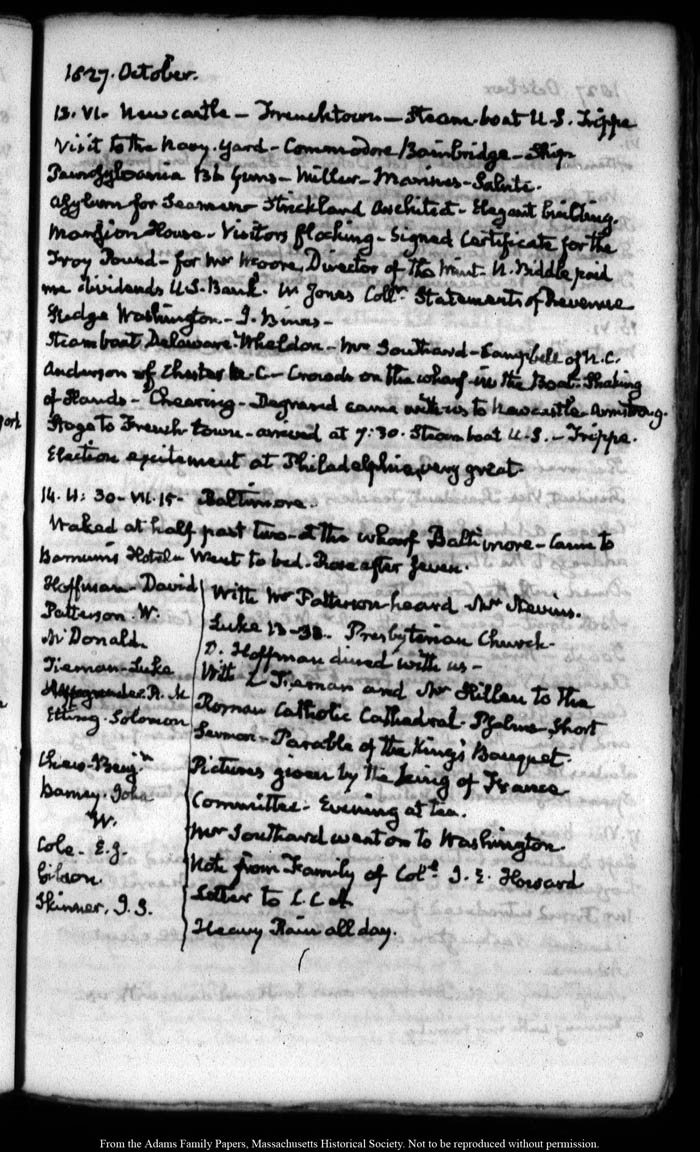 1827. October.
13. VI. Newcastle – Frenchtown – Steam-boat U.S. Trippe
Visit to the Navy-Yard – Commodore Bainbridge – Ship
Pennsylvania 136 Guns – Miller – Marines – Salute.
Asylum for Seamen – Strickland Architect – Elegant building.
Mansion House – Visitors flocking – Signed Certificate for the
Troy Pound – for Mr Moore, Director of the Mint. N. Biddle paid
me dividends U.S. Bank. W Jones Collr. Statements of Revenue
Sledge Washington – J. Binns –
Steam boat Delaware. Wheldon – Mr Southard – Campbell of N.C.
Anderson of Chester – Crowds on the wharf – in the Boat. Shaking
of Hands – Cheering – Degrand came with us to Newcastle. Armstrong.
Stage to French town – arrived at 7:30. Steam boat U.S. – Trippe.
Election excitement at Philadelphia, very great.
14. 4:30 – VII. 15 – Baltimore.
Waked at half past two – at the wharf Baltimore – Came to
Barnum's Hotel – Went to bed. Rose after Seven.
Hoffman – David
Patterson. W.
McDonald
Tiernan – Luke
R.
Etting – Solomon
Chew – Benjn
Barney. John
W.
Cole – E. J.
Gibson
Skinner. J. S.
With Mr Patterson heard Mr Nevins.
Luke 13–33. Presbyterian Church.
D. Hoffman dined with us –
With L Tiernan and Mr Hillen to the
Roman Catholic Cathedral – Psalms, Short
Sermon – Parable of the King's Banquet.
Pictures given by the king of France
Committee – Evening at tea.
Mr Southard went on to Washington
Note from Family of Coll. J. E. Howard
Letter to L. C. A.
Heavy Rain all day.
From the Adams Family Papers, Massachusetts Historical Society. Not to be reproduced without permission.